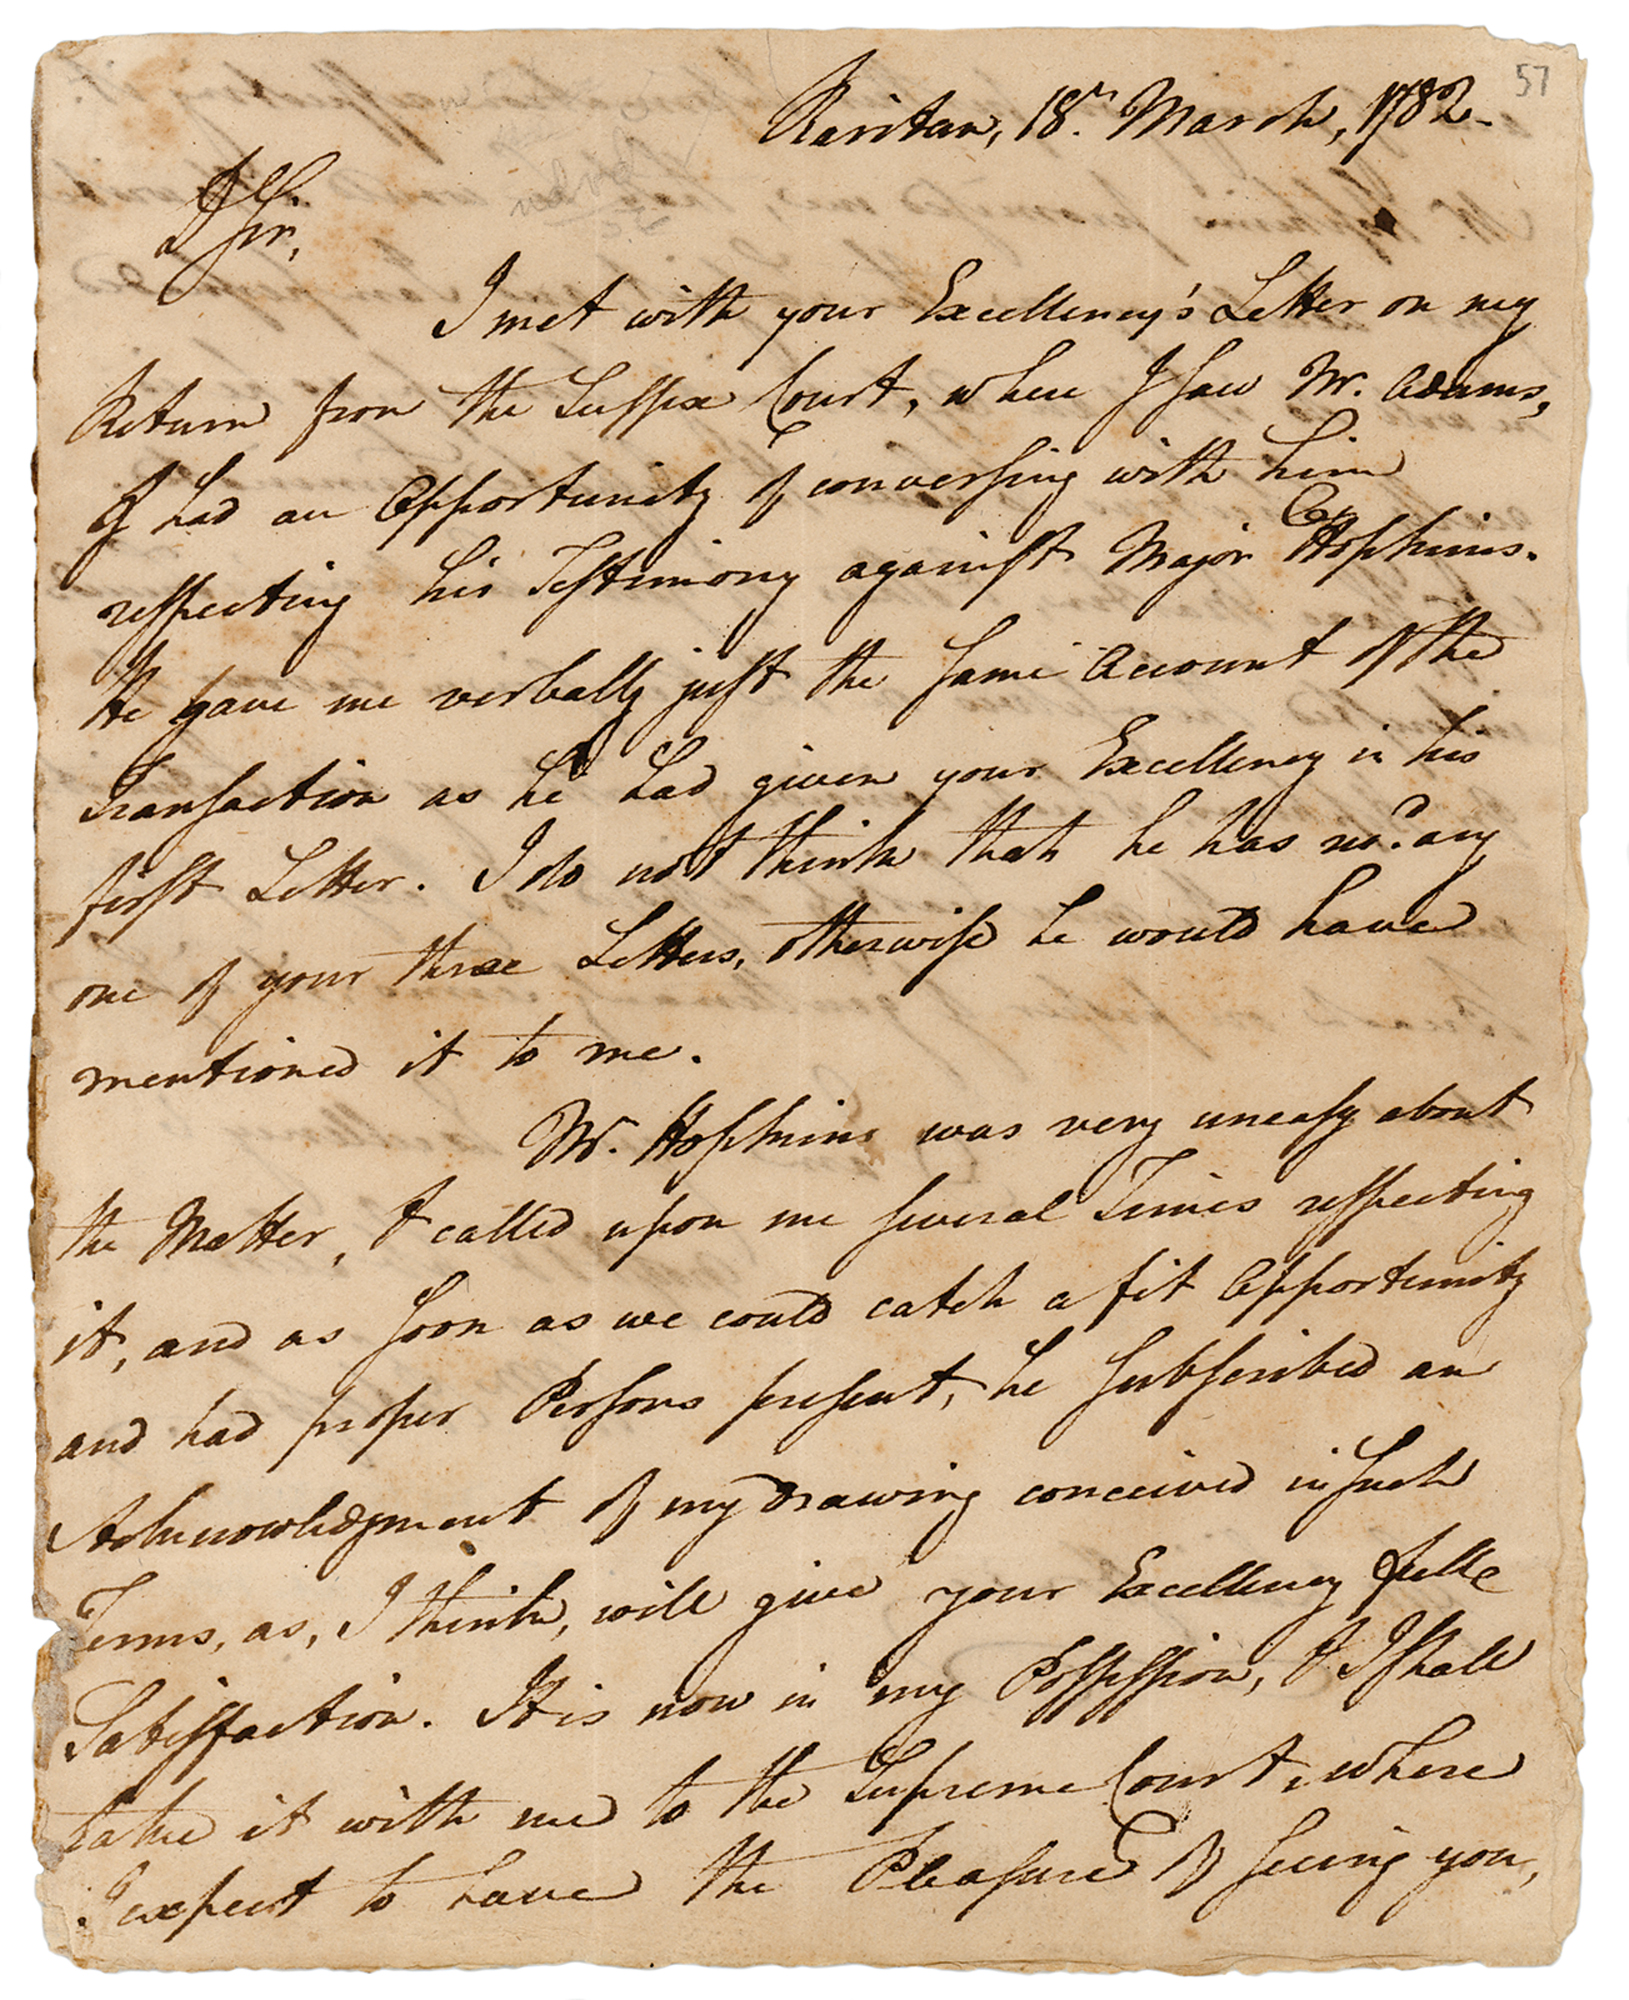 57
Raritan, 18th. March, 1782.
D Sir,
I met with your Excellency's Letter on my
Return from the Sussex Court, where I saw Mr. Adams,
& had an Opportunity of conversing with him
respecting his Testimony against Major Hopkins.
He gave me verbally just the same Account of the
Transaction as he had given your Excellency in his
first Letter. I do not think that he has recd. any
one of your three Letters, otherwise he would have
mentioned it to me.
Mr. Hopkins was very uneasy about
the Matter, & called upon me several Times respecting
it, and as soon as we could catch a fit Opportunity
and had proper Persons present, he subscribed an
Acknowledgment of my Drawing conceived in such
Terms, as, I think, will give your Excellency full
Satisfaction. It is now in my Possession, & I shall
take it with me to the Supreme Court, where
I expect to have the Pleasure of seeing you,